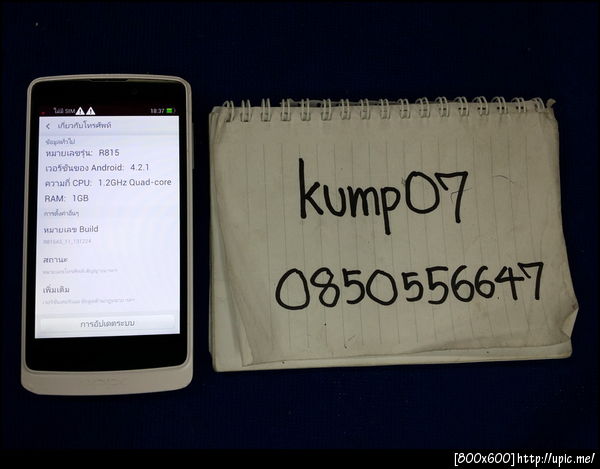 ไม่มี SIM 18:37
เกี่ยวกับโทรศัพท์
ข้อมูลทั่วไป
หมายเลขรุ่น: R815
เวอร์ชันของ Android: 4.2.1
ความถี่ CPU: 1.2GHz Quad-core
RAM: 1GB
การตั้งค่าอื่นๆ
หมายเลข Build
R815AS_11_131224
สถานะ
เพิ่มเติม
การอัปเดตระบบ
kump07
0850556647
[800x600]http://upic.me/